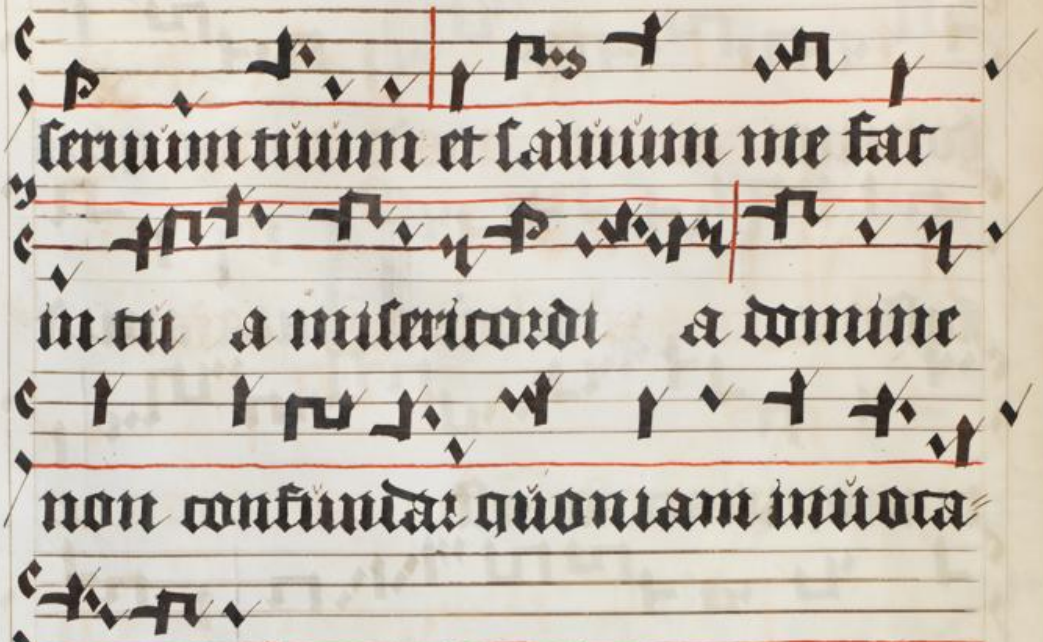 seruum tuum et saluum me fac
in tu a misericordi a domine
non confundar quoniam inuoca=